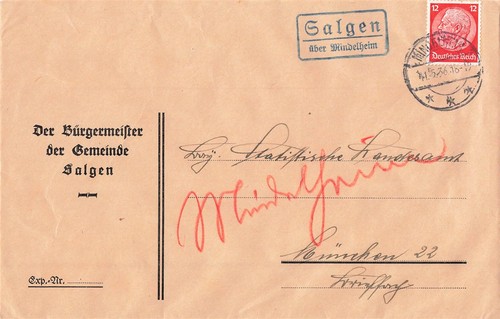 Salgen
über Mindelheim
12 12
Deutsches Reich
Der Bürgermeister
der Gemeinde
Salgen
Bay. Statistische Landesamt
Mindelheim
München 22
Brieffach
Exp.-Nr.